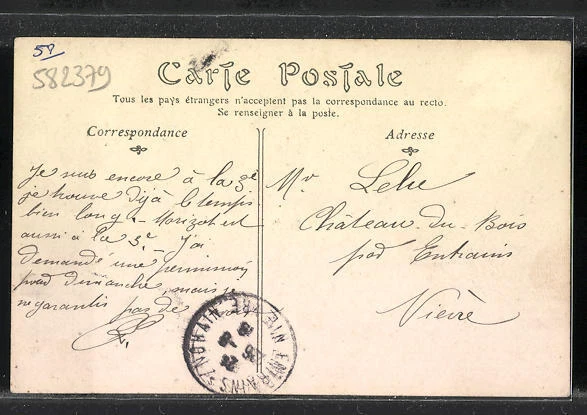 58
582379
Carte Postale
Tous les pays étrangers n'acceptent pas la correspondance au recto.
Se renseigner à la poste.
Correspondance
Adresse
Je suis encore à la 3e
je trouve déjà le temps
bien long. - Morizot est
aussi à la 3e - J'ai
demandé une permission
pour dimanche, mais je
ne garantis pas de
Mr Lelu
Château-du-Bois
par Entrains
Nièvre
ENTRAINS NIEVRE